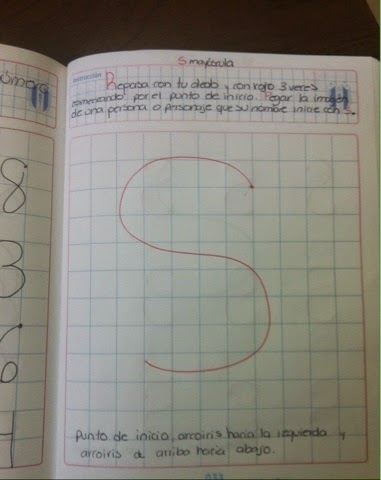 S mayúscula
Instrucción
Repasa con tu dedo y con rojo 3 veces
comenzando por el punto de inicio. Pegar la imagen
de una persona o personaje que su nombre inicie con S.
8
3
6
S
Punto de inicio, arcoiris hacia la izquierda y
arcoiris de arriba hacia abajo.